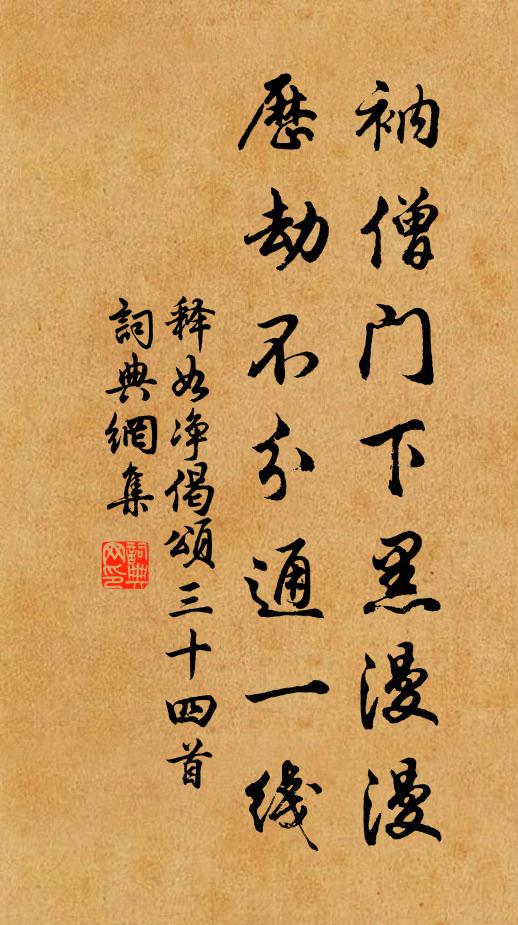 衲僧門下黑漫漫
歷劫不分通一綫
释如净偈頌三十四首
詞典網集
詞典网印